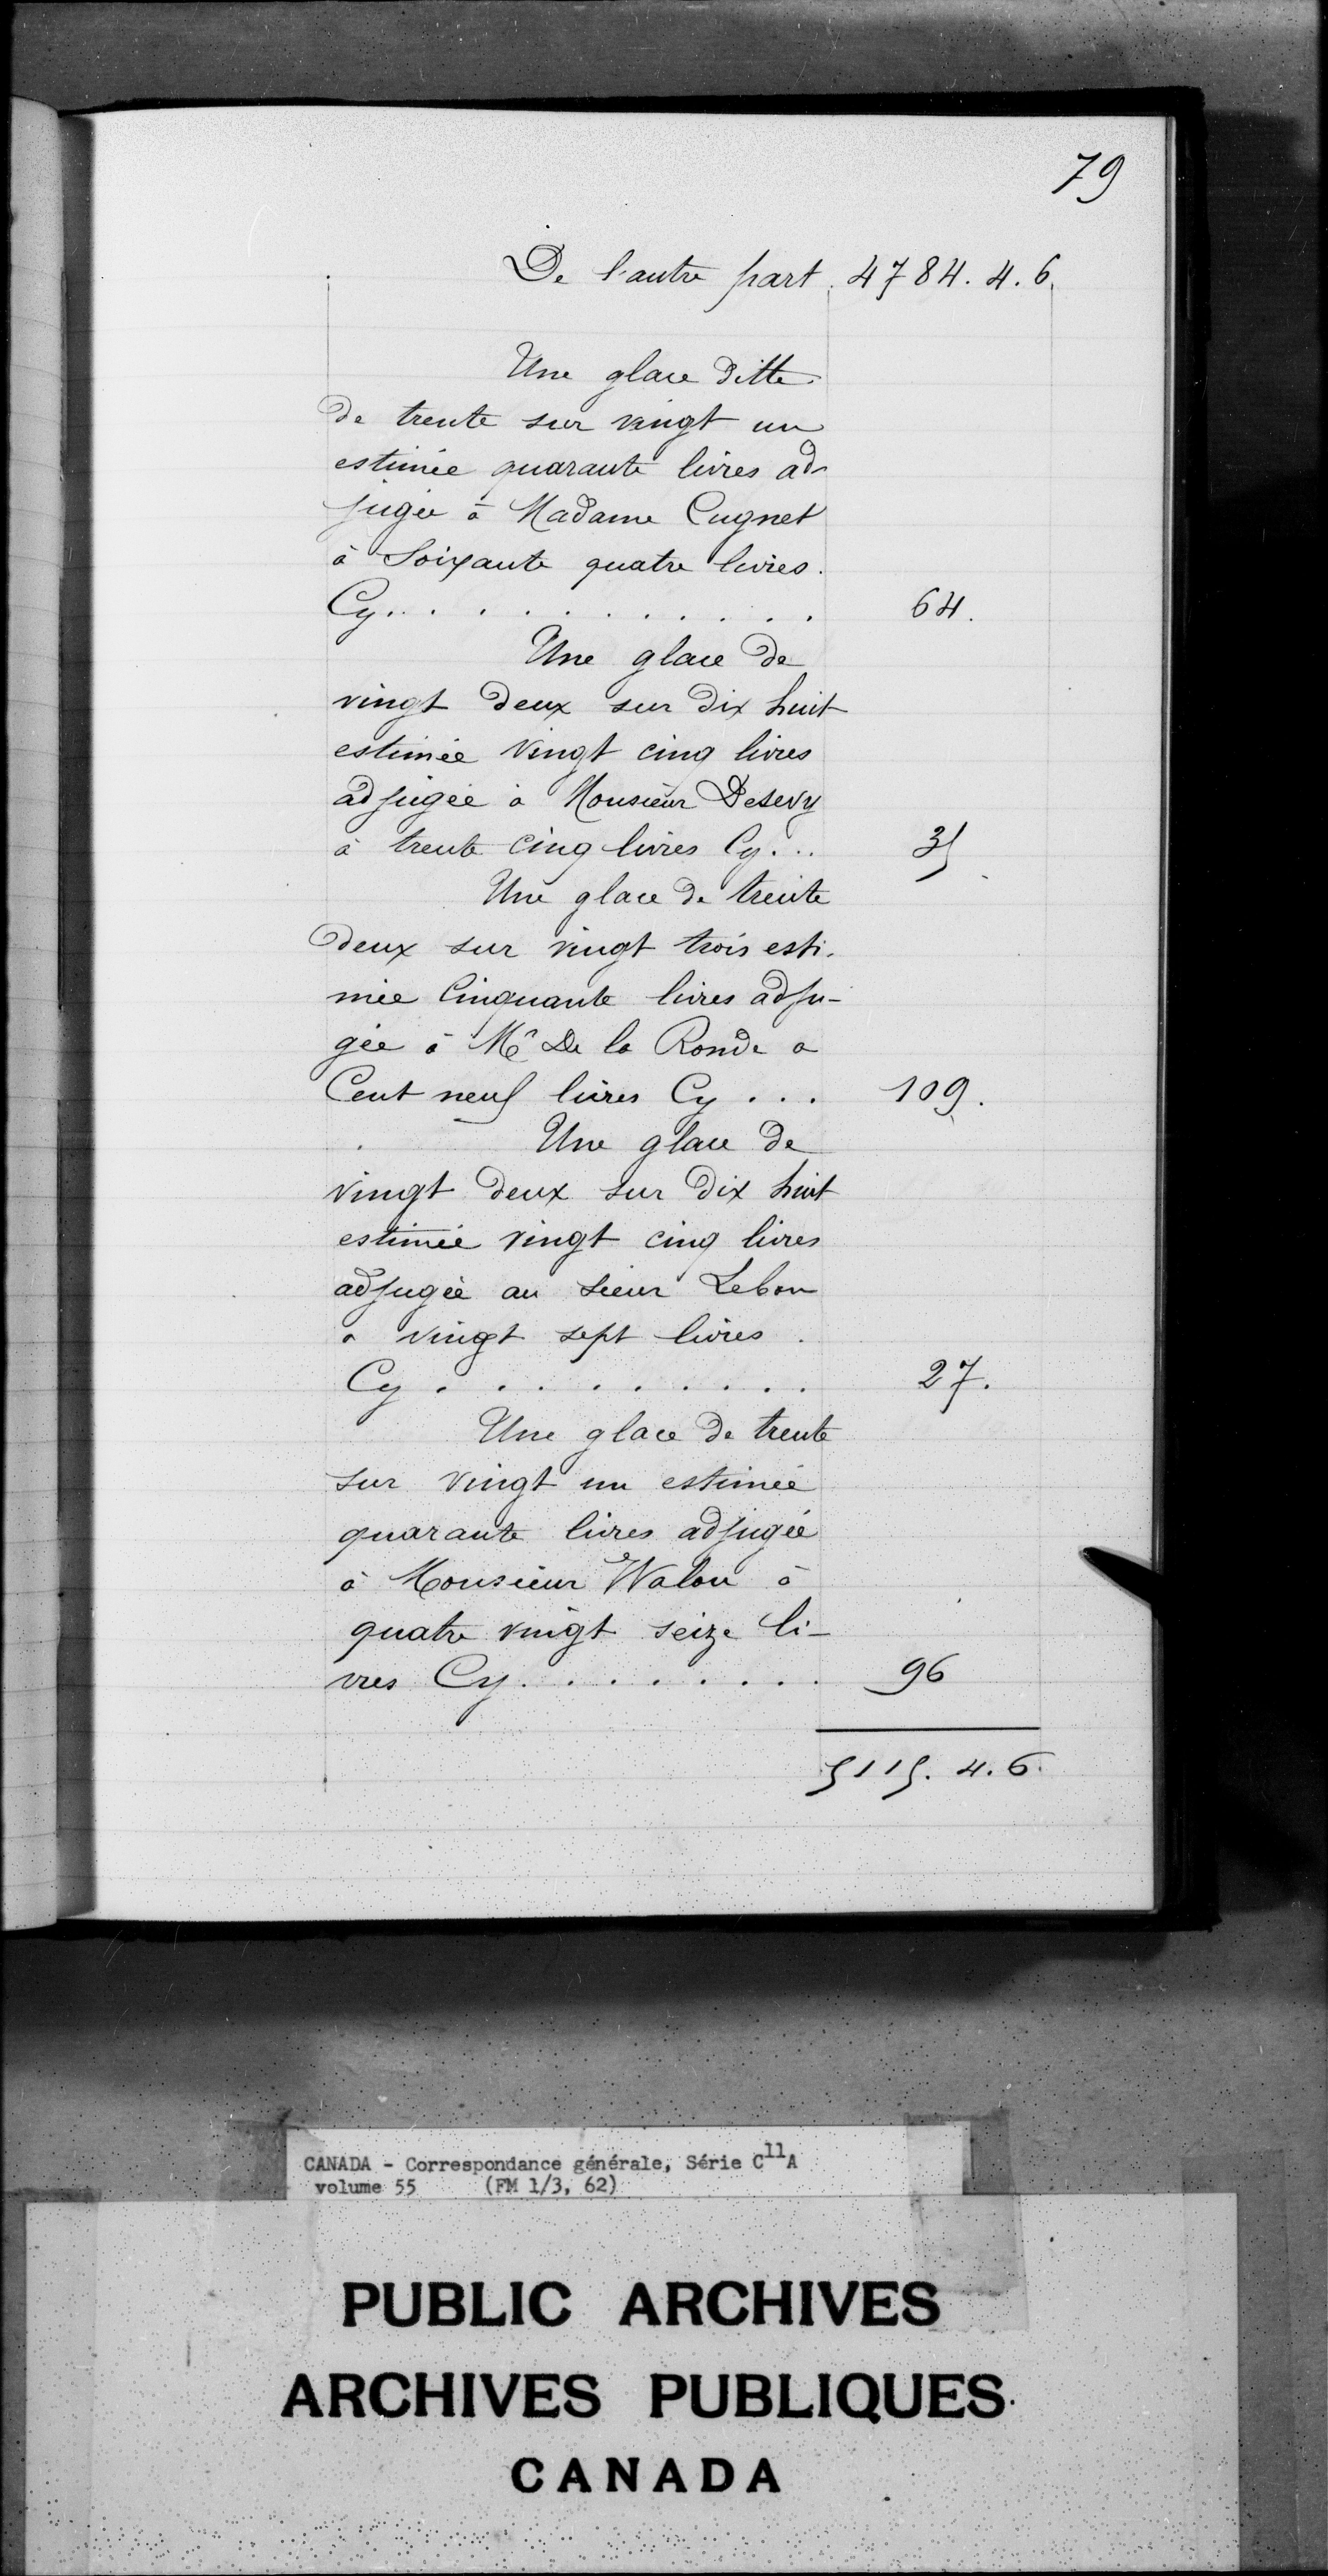 79
De l'autre part. 4784. 4. 6.
Une glace ditte
de trente sur vingt un
estimée quarante livres ad-
jugée à Madame Cugnet
à Soixante quatre livres.
Cy . . . . . . . . . . . 64.
Une glace de
vingt deux sur dix huit
estimée vingt cinq livres
adjugée à Monsieur
à trente cinq livres Cy . . . 35
Une glace de trente
deux sur vingt trois esti-
mée Cinquante livres adju-
gée à Mr De la Ronde a
Cent neuf livres Cy . . . 109.
Une glace de
vingt deux sur dix huit
estimée vingt cinq livres
adjugée au sieur Lebon
a vingt sept livres.
Cy . . . . . . . . . 27.
Une glace de trente
sur vingt un estimée
quarante livres adjugée
à Monsieur Walon à
quatre vingt seize li-
vres Cy . . . . . . . . 96
5115. 4. 6.
CANADA - Correspondance générale, Série C11A
volume 55 (FM 1/3, 62)
PUBLIC ARCHIVES
ARCHIVES PUBLIQUES
CANADA